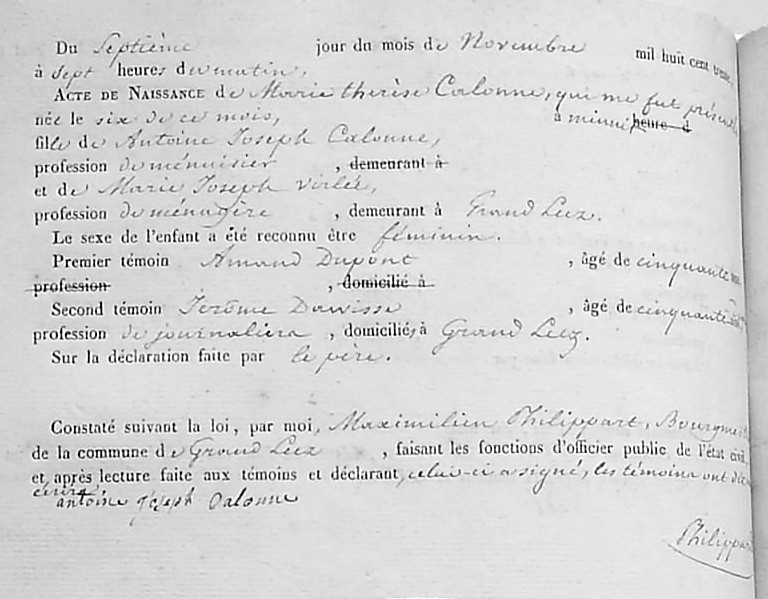 Du Septième jour du mois de Novembre mil huit cent trente,
à sept heures du matin,
ACTE DE NAISSANCE de Marie thérèse Calonne, qui me fut présentée
née le six de ce mois, à minuit heure d
fille de Antoine Joseph Calonne,
profession de ménuisier , demeurant à
et de Marie Joseph virlée,
profession de ménagère , demeurant à Grand Leez.
Le sexe de l'enfant a été reconnu être féminin.
Premier témoin Amand Dupont , âgé de cinquante
profession , domicilié à
Second témoin Jerôme Dawisse , âgé de cinquante
profession de journaliers , domiciliés à Grand Leez.
Sur la déclaration faite par le père.
Constaté suivant la loi, par moi, Maximilien Philippart, Bourgme
de la commune de Grand Leez , faisant les fonctions d'officier public de l'état civil,
et après lecture faite aux témoins et déclarant, celui-ci a signé, les témoins ont
antoine joseph Calonne
Philippart